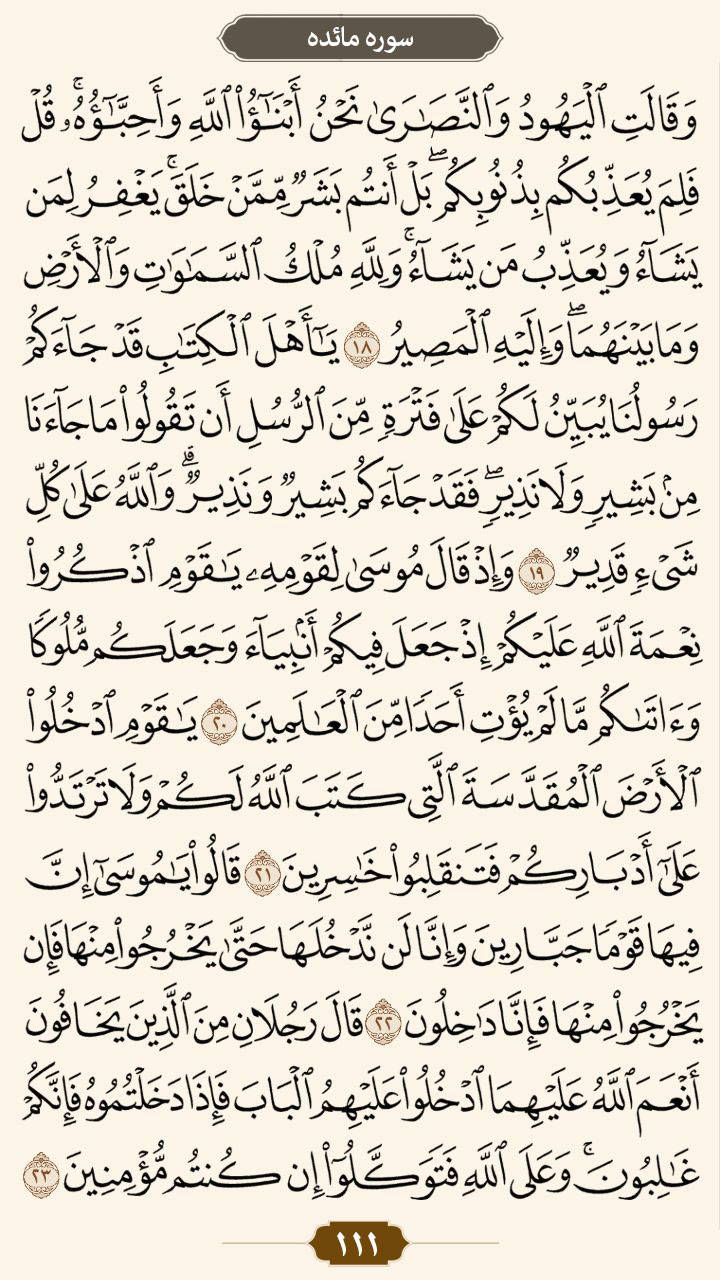 سوره مائده
وَقَالَتِ ٱلۡيَهُودُ وَٱلنَّصَٰرَىٰ نَحۡنُ أَبۡنَٰٓؤُاْ ٱللَّهِ وَأَحِبَّٰٓؤُهُۥۚ قُلۡ
فَلِمَ يُعَذِّبُكُم بِذُنُوبِكُمۖ بَلۡ أَنتُم بَشَرٞ مِّمَّنۡ خَلَقَۚ يَغۡفِرُ لِمَن
يَشَآءُ وَيُعَذِّبُ مَن يَشَآءُۚ وَلِلَّهِ مُلۡكُ ٱلسَّمَٰوَٰتِ وَٱلۡأَرۡضِ
وَمَا بَيۡنَهُمَاۖ وَإِلَيۡهِ ٱلۡمَصِيرُ ١٨ يَٰٓأَهۡلَ ٱلۡكِتَٰبِ قَدۡ جَآءَكُمۡ
رَسُولُنَا يُبَيِّنُ لَكُمۡ عَلَىٰ فَتۡرَةٖ مِّنَ ٱلرُّسُلِ أَن تَقُولُواْ مَا جَآءَنَا
مِنۢ بَشِيرٖ وَلَا نَذِيرٖۖ فَقَدۡ جَآءَكُم بَشِيرٞ وَنَذِيرٞۗ وَٱللَّهُ عَلَىٰ كُلِّ
شَيۡءٖ قَدِيرٞ ١٩ وَإِذۡ قَالَ مُوسَىٰ لِقَوۡمِهِۦ يَٰقَوۡمِ ٱذۡكُرُواْ
نِعۡمَةَ ٱللَّهِ عَلَيۡكُمۡ إِذۡ جَعَلَ فِيكُمۡ أَنۢبِيَآءَ وَجَعَلَكُم مُّلُوكٗا
وَءَاتَىٰكُم مَّا لَمۡ يُؤۡتِ أَحَدٗا مِّنَ ٱلۡعَٰلَمِينَ ٢٠ يَٰقَوۡمِ ٱدۡخُلُواْ
ٱلۡأَرۡضَ ٱلۡمُقَدَّسَةَ ٱلَّتِي كَتَبَ ٱللَّهُ لَكُمۡ وَلَا تَرۡتَدُّواْ
عَلَىٰٓ أَدۡبَارِكُمۡ فَتَنقَلِبُواْ خَٰسِرِينَ ٢١ قَالُواْ يَٰمُوسَىٰٓ إِنَّ
فِيهَا قَوۡمٗا جَبَّارِينَ وَإِنَّا لَن نَّدۡخُلَهَا حَتَّىٰ يَخۡرُجُواْ مِنۡهَا فَإِن
يَخۡرُجُواْ مِنۡهَا فَإِنَّا دَٰخِلُونَ ٢٢ قَالَ رَجُلَانِ مِنَ ٱلَّذِينَ يَخَافُونَ
أَنۡعَمَ ٱللَّهُ عَلَيۡهِمَا ٱدۡخُلُواْ عَلَيۡهِمُ ٱلۡبَابَ فَإِذَا دَخَلۡتُمُوهُ فَإِنَّكُمۡ
غَٰلِبُونَۚ وَعَلَى ٱللَّهِ فَتَوَكَّلُوٓاْ إِن كُنتُم مُّؤۡمِنِينَ ٢٣
١١١